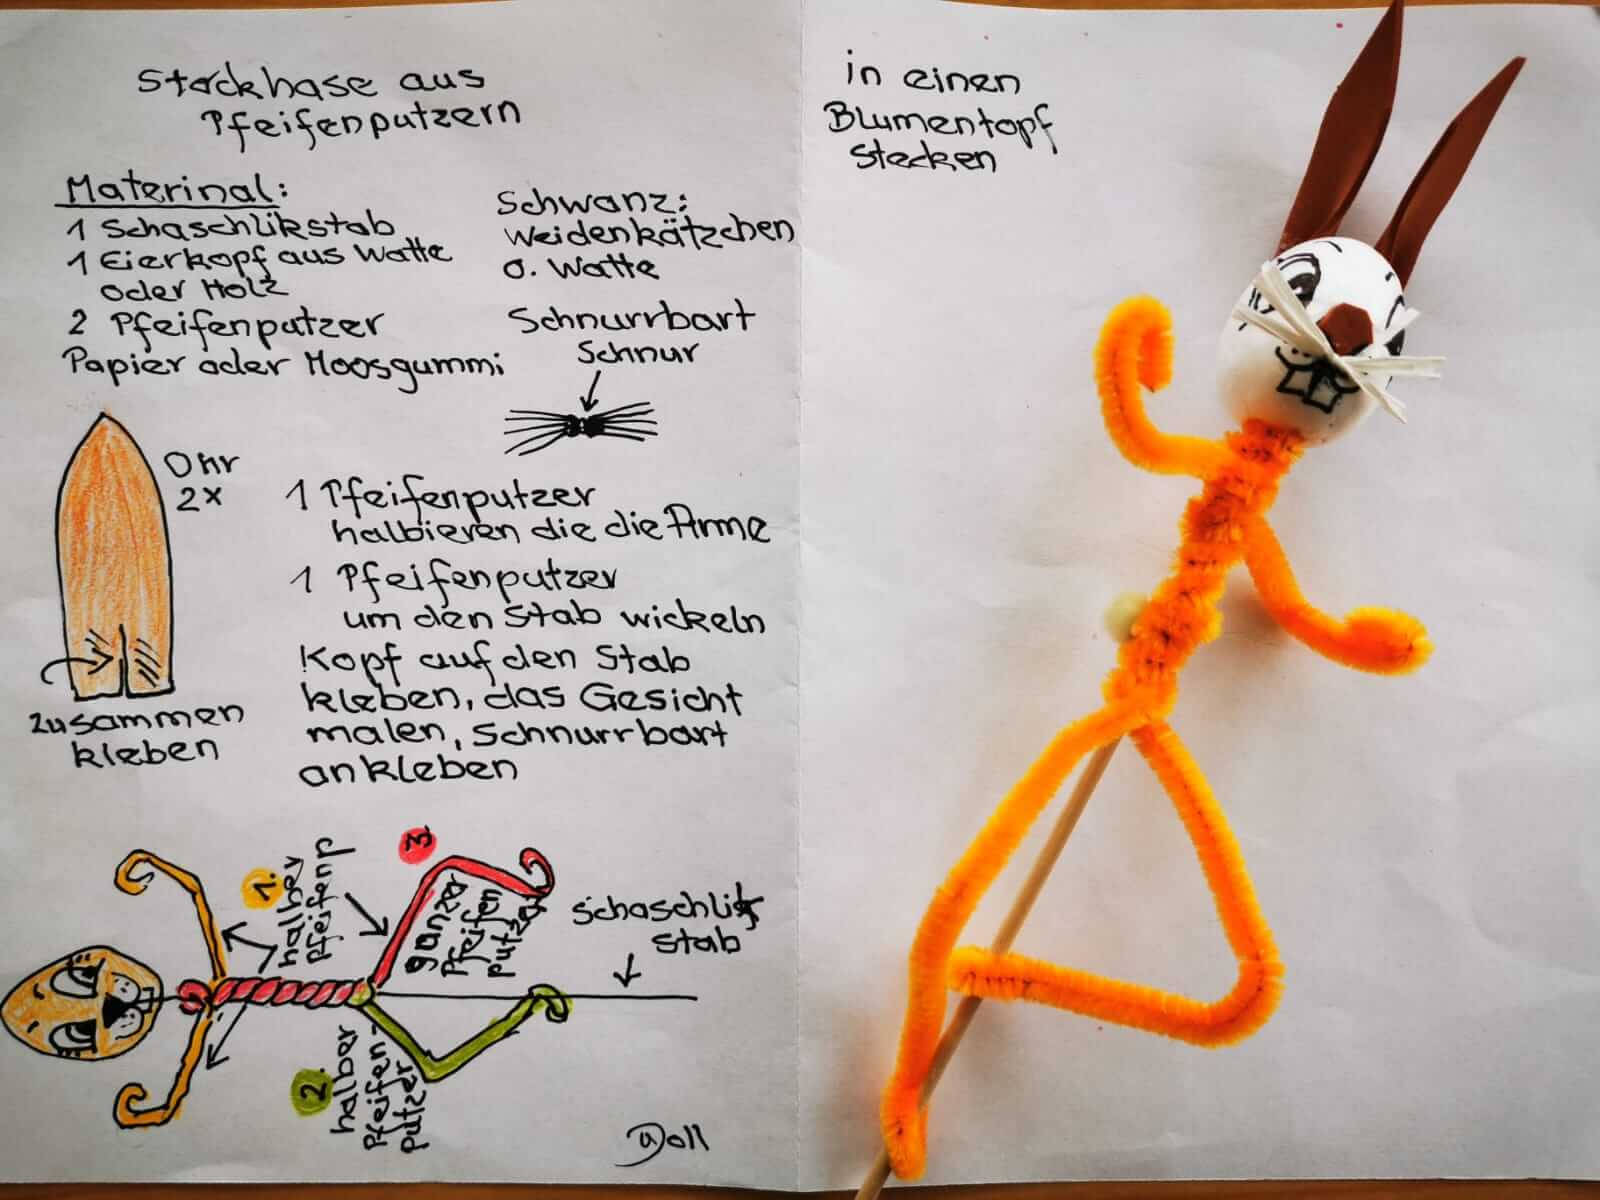 Stockhase aus
Pfeifenputzern
Materinal:
1 Schaschlikstab
1 Eierkopf aus Watte
oder Holz
2 Pfeifenputzer
Papier oder Moosgummi
Schwanz:
Weidenkätzchen
o. Watte
Schnurrbart
Schnur
Ohr
2x
zusammen
kleben
1 Pfeifenputzer
halbieren die die Arme
1 Pfeifenputzer
um den Stab wickeln
Kopf auf den Stab
kleben, das Gesicht
malen, Schnurrbart
ankleben
1.
halber
Pfeifenp
3.
ganzer
Pfeifen
putzer
Schaschlik
stab
2.
halber
Pfeifen-
putzer
Doll
in einen
Blumentopf
stecken